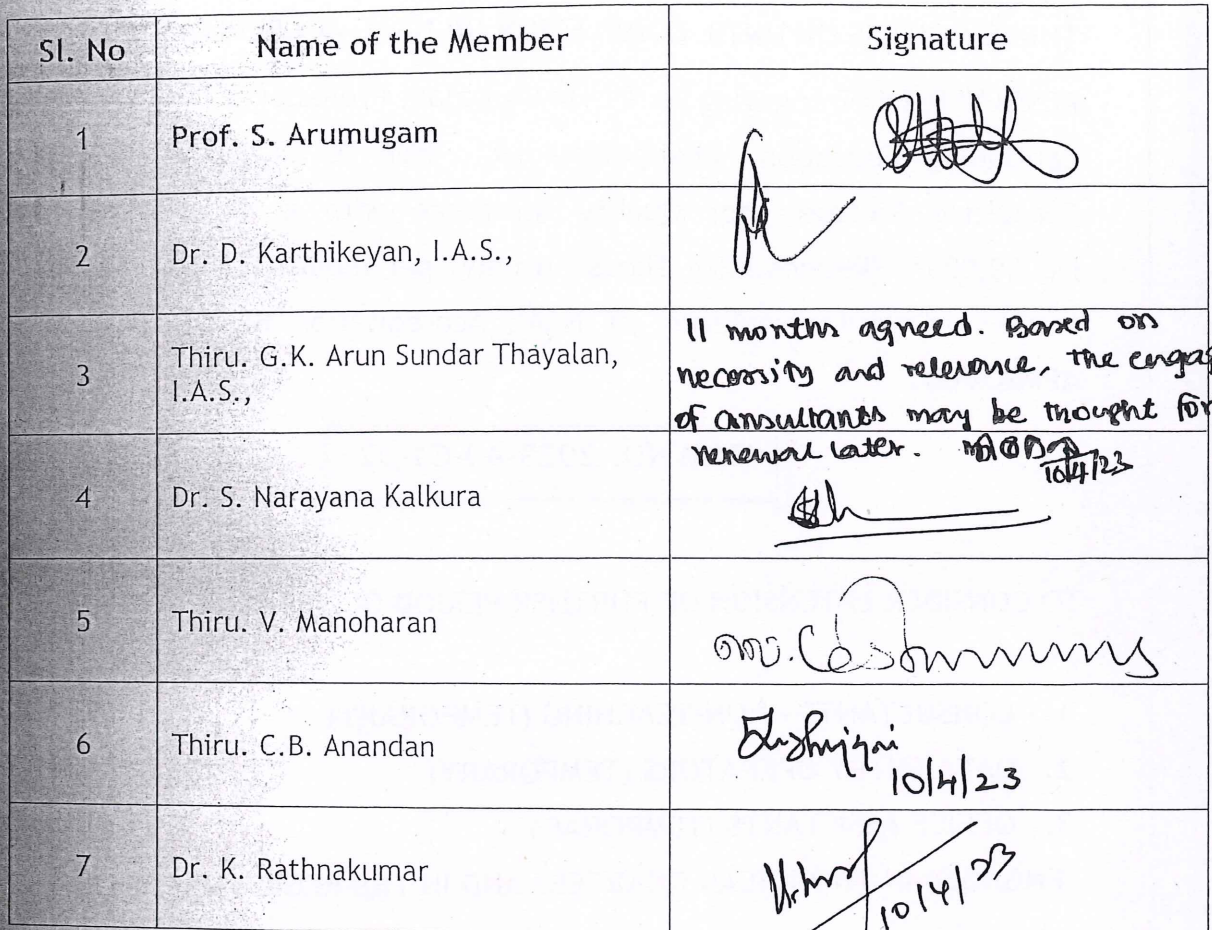 Sl. No Name of the Member Signature
1 Prof. S. Arumugam
2 Dr. D. Karthikeyan, I.A.S.,
3 Thiru. G.K. Arun Sundar Thayalan,
I.A.S.,
11 months agreed. Based on
necessity and relevance, the engag
of consultants may be thought for
renewal later.
10/4/23
4 Dr. S. Narayana Kalkura
5 Thiru. V. Manoharan
6 Thiru. C.B. Anandan
10/4/23
7 Dr. K. Rathnakumar
10/4/23